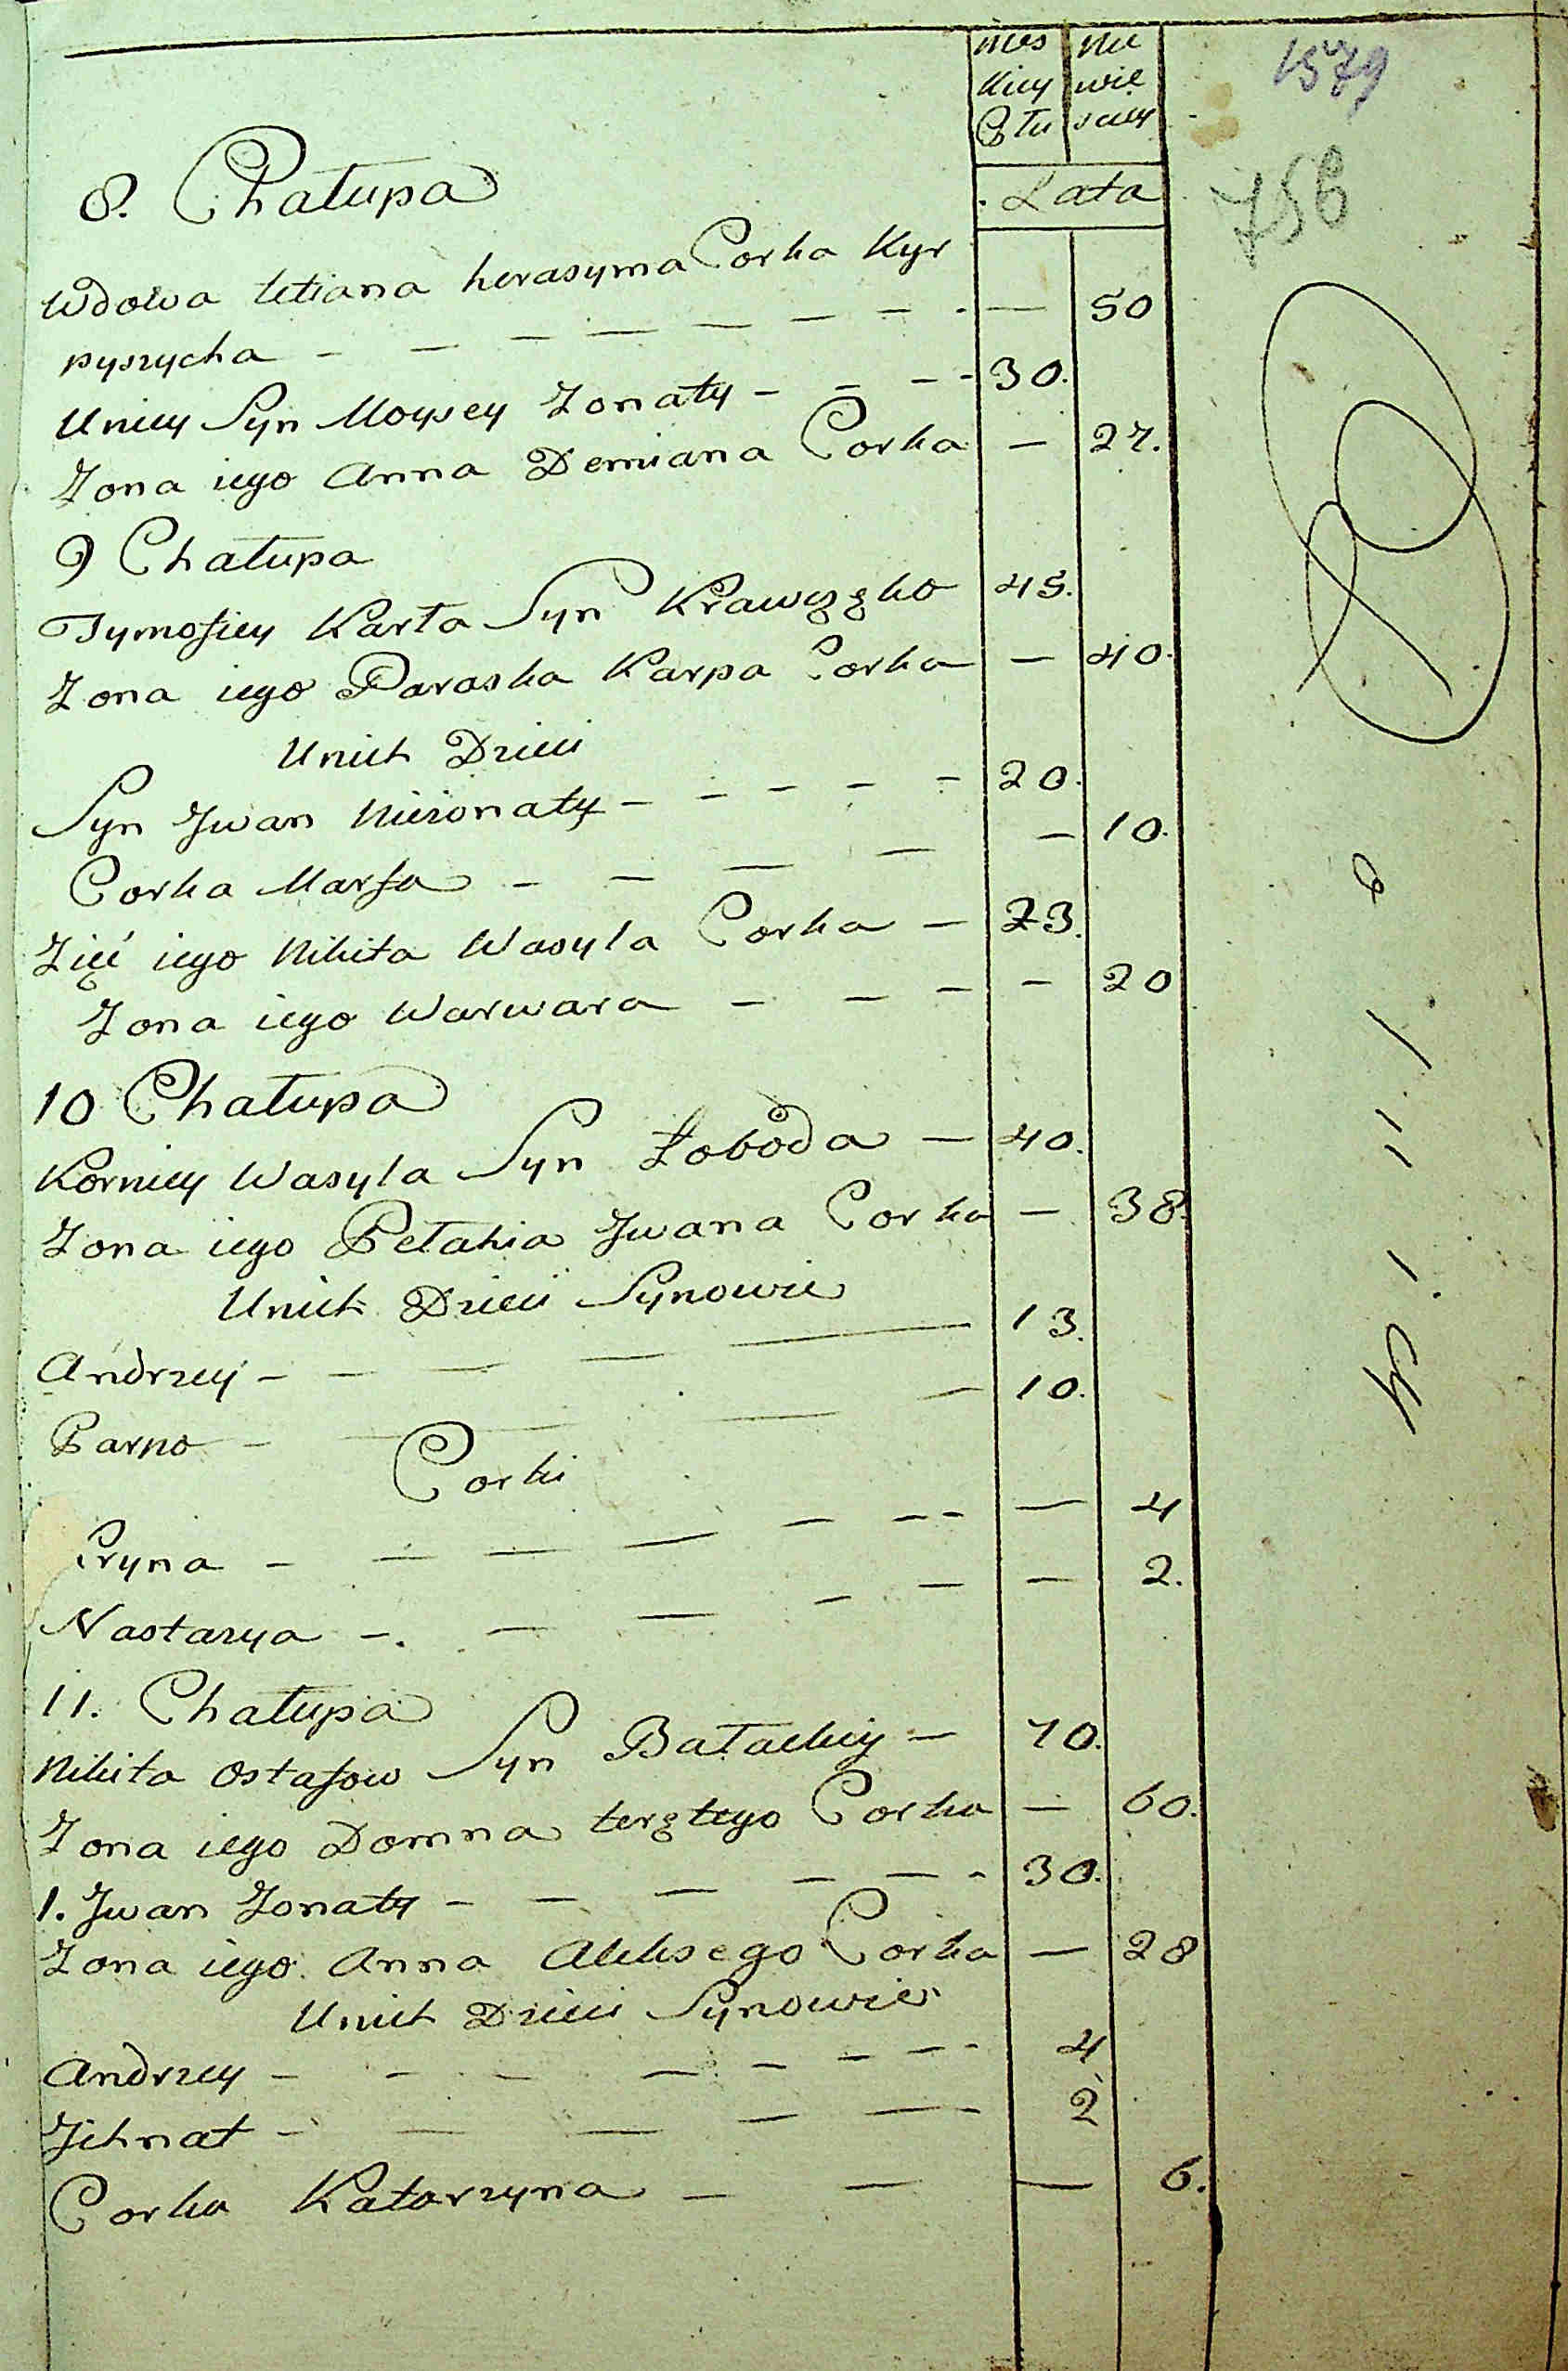 mes nie
kiey wie
Płu sciey
Lata
1579
756
8. Chałupa
Wdowa tetiana herasyma Corka Kyr
pyszycha - - - - - - - - — 50
Uniey Syn Moysey Zonaty - - - - 30.
Zona iego Anna Demiana Corka — 27.
9 Chałupa
Tymofiey Karła Syn Krawczęko 45.
Zona iego Paraska Karpa Corka — 40.
Unich Dzieci
Syn Jwan Niezonaty - - - - - 20.
Corka Marfa - - - - — 10.
Zięć iego Nikita Wasyla Corka — 23.
Zona iego Warwara - - - — 20
10 Chałupa
Korniey Wasyla Syn Łoboda — 40.
Zona iego Pełahia Jwana Corka — 38.
Unich Dzieci Synowie
Andrzey - - - - - 13.
Parno - - - - 10.
Corki
Iryna - - - - - - - — 4
Nastazya - - - - - — 2.
11. Chałupa
Nikita Ostafow Syn Bałackiy — 70.
Zona iego Domna teręteyo Corka — 60.
1. Jwan Zonaty - - - - - - 30.
Zona iego Anna Aleksego Corka — 28
Unich Dzieci Synowie
Andrzey - - - - - - - - 4
Jihnat - - - - - - 2
Corka Katarzyna - - — 6.